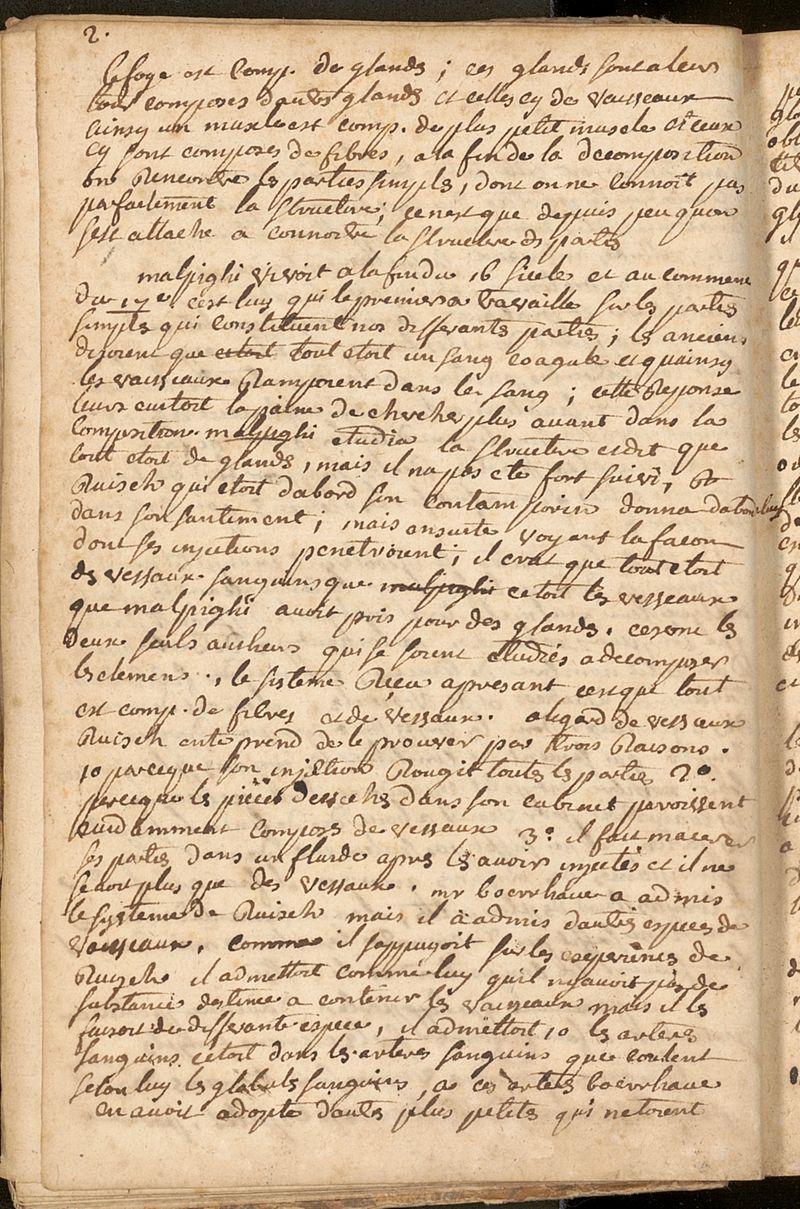 2.
le foye est comp. de glands ; ces glands sont a leur
tour composes dautrs glands et celles cy de vaisseaux
ainsy un muscle est comp. de plus petit muscle et ceux
cy sont composes de fibres, a la fin de la decomposition
on Rencontre ls parties simpls, dont on ne connoit pas
parfaitement la structure ; ce nest que depuis peu quon
sest attaché a connoitre la structure ds partis
malpighi vivoit a la fin du 16 siecle et au commenc
du 17e cest luy qui le premier a travaillé sur ls partis
simpls qui constituent nos differants partis ; ls anciens
disoient que etoit tout etoit un sang coagulé et quainsy
les vaisseaux Rampoient dans le sang ; cette Reponse
leurs evitoit la paine de chercher plus avant dans la
composition malpighi etudia la structure et dit que
tout etoit de glands, mais il na pas eté fort suivi, et
Ruisch qui etoit dabord son contamporin donna dabord
dans son santiment ; mais ensuite voyant la facon
dont ses injections penetroient ; il crut que tout etoit
ds vessaux sanguins que malpighi cetoit ls vesseaux
que malpighi avoit pris pour des glands. ce sont ls
deux seuls autheurs qui se soient etudiés a decomposer
ls elemens., le sisteme Recu apresant cest que tout
est comp. de fibres et de vessaux. a legard de vesseaux
Ruisch entreprend de le prouver par trois Raisons.
1o parceque son injection Rougit toutes ls partis 2o.
parceque ls pieces dessechs dans son cabinet paroissent
evidamment compoos de vessaux 3o. il fait macerer
ses partis dans un fluide aprs ls avoir injectés et il ne
se voit plus que des vessaux. mr boerrhave a admis
le systeme de Ruisch mais il a admis dautrs especes de
vaisseaux. comme il sappuyoit sur les experiences de
Ruisch il admettoit comme luy quil ny avoit pas de
substance destinee a contenir ls vaisseaux mais il ls
faisoit de differante espece, il admettoit 1o ls arteres
sanguins cetoit dans ls arteres sanguins que coulent
selon luy ls globuls sanguins, a ces arters boerrhave
en avoit adopté dautrs plus petits qui netoient